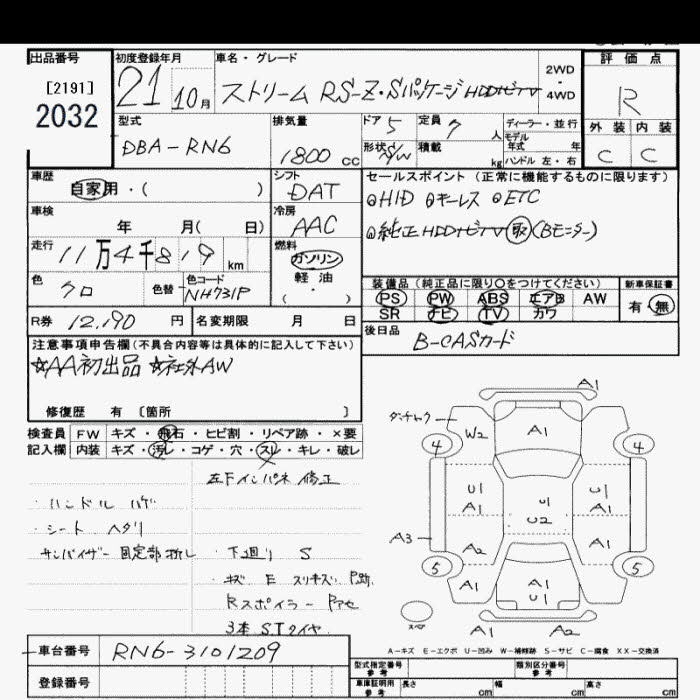 出品番号
[2191]
2032
初度登録年月
21 10月
車名・グレード
ストリーム RS-Z・Sパッケージ HDDナビTV
2WD
・
4WD
評価点
R
外装 内装
C C
型式
DBA-RN6
排気量
1800 cc
ドア 5
定員 7 人
形状 S/W
積載 kg
ディーラー・並行
モデル
年式 年
ハンドル 左・右
車歴
自家用・( )
シフト
DAT
車検
年 月( 日)
冷房
AAC
走行
11万4千819 km
燃料
ガソリン
軽油
・
( )
色
クロ
色替
色コード
NH731P
R券 12,190 円
名変期限 月 日
セールスポイント (正常に機能するものに限ります)
◎HID ◎キーレス ◎ETC
◎純正HDDナビTV 取 (Bモニター)
装備品 (純正品に限り○をつけてください)
PS PW ABS エアB AW
SR ナビ TV カワ
新車保証書
有・無
後日品
B-CASカード
注意事項申告欄(不具合内容等は具体的に記入して下さい)
☆AA初出品 ☆社外AW
修復歴 有 〔箇所 〕
検査員 FW キズ・飛石・ヒビ割・リペア跡・×要
記入欄 内装 キズ・汚レ・コゲ・穴・スレ・キレ・破レ
左Fインパネ 修正
・ハンドル ハゲ
・シート ヘタリ
サンバイザー 固定部折レ
・下廻リ S
・キズ E スリキズ P跡
Rスポイラー Pアセ
3本 STタイヤ
A1
ダンチャク
4 W2 A1 4
U1 A1
U1 U2
U1 A1
A3
A2 A1
5 A1 A1 U1 A1 5
スペア
A1 A2
A-キズ E-エクボ U-凹み W-補修跡 S-サビ C-腐食 XX-交換済
車台番号 RN6-3101209
登録番号
型式指定番号
参考
類別区分番号
参考
車庫証明用
参考
長さ cm 幅 cm 高さ cm